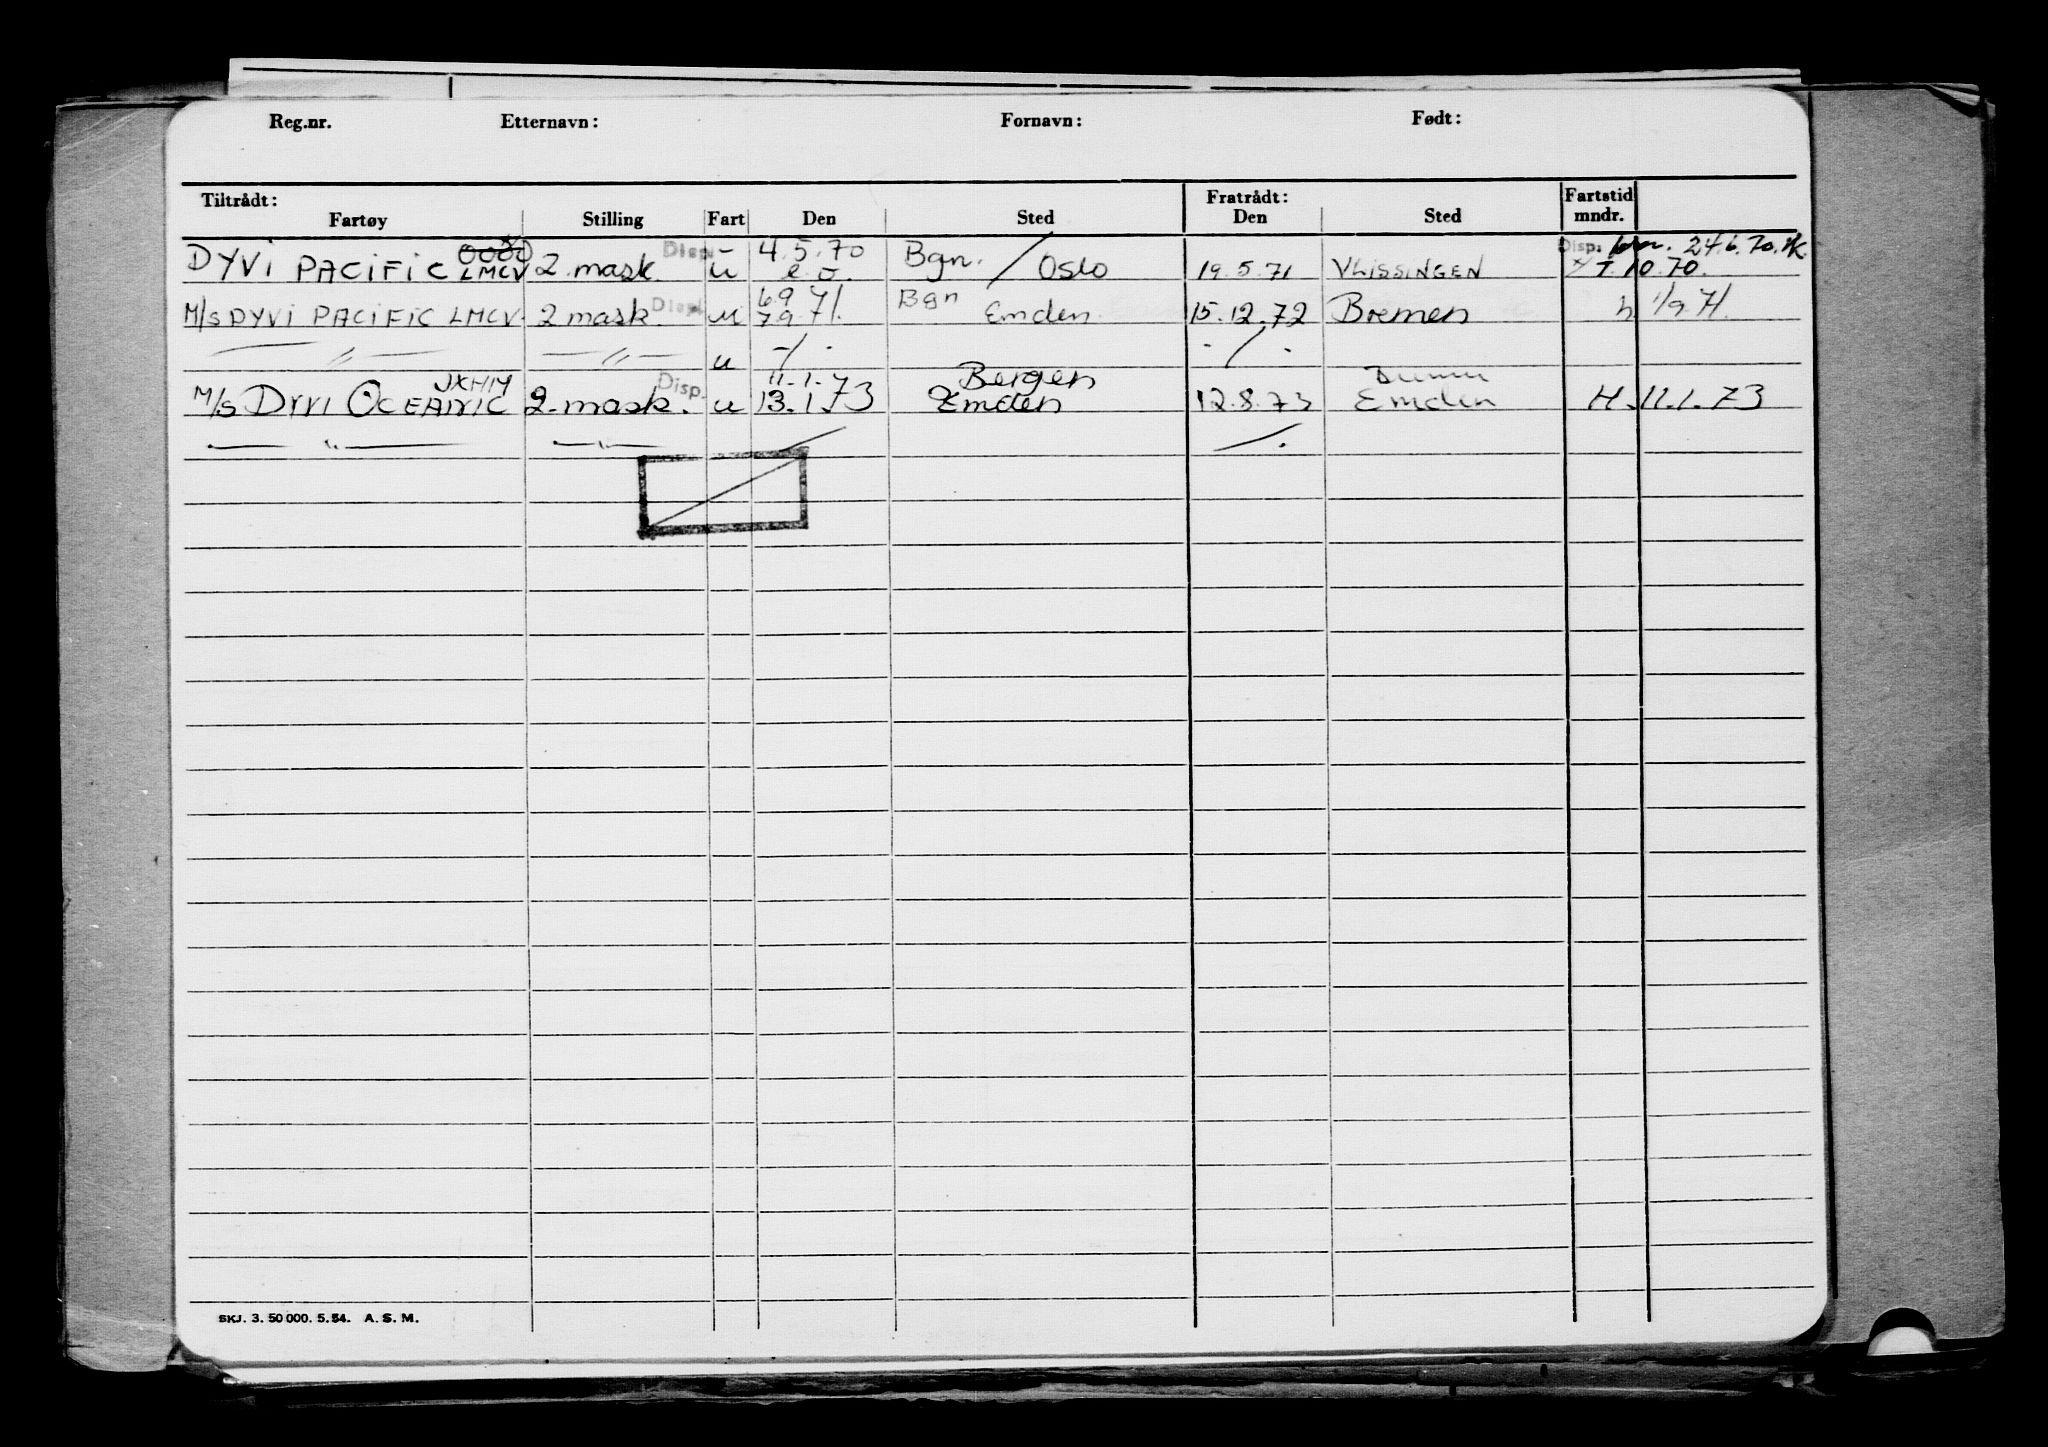 Reg.nr. Etternavn: Fornavn: Født:
Tiltrådt: Fratrådt: Fartstid
Fartøy Stilling Fart Den Sted Den Sted mndr.
Disp. 4.5.70 Bgn. Disp. 24.6.70.
DYVI PACIFIC LMCV 2 mask. u / Oslo 19.5.71 VLISSINGEN 10.70.
Disp. 6.9 71. Bgn
M/S DYVI PACIFIC LMCV. 2 mask. u 7.9 Emden 15.12.72 Bremen h 1/9 71.
—〃— —〃— u -/- -/-
JXHM Disp. 11.1.73 Bergen
M/S DYVI OCEANIC 2. mask. u 13.1.73 Emden 12.8.73 Emden H. 11.1.73
—〃— —〃—
SKJ. 3. 50 000. 5. 54. A. S. M.